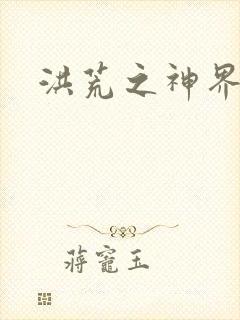 洪荒之神界
蒋寵玉